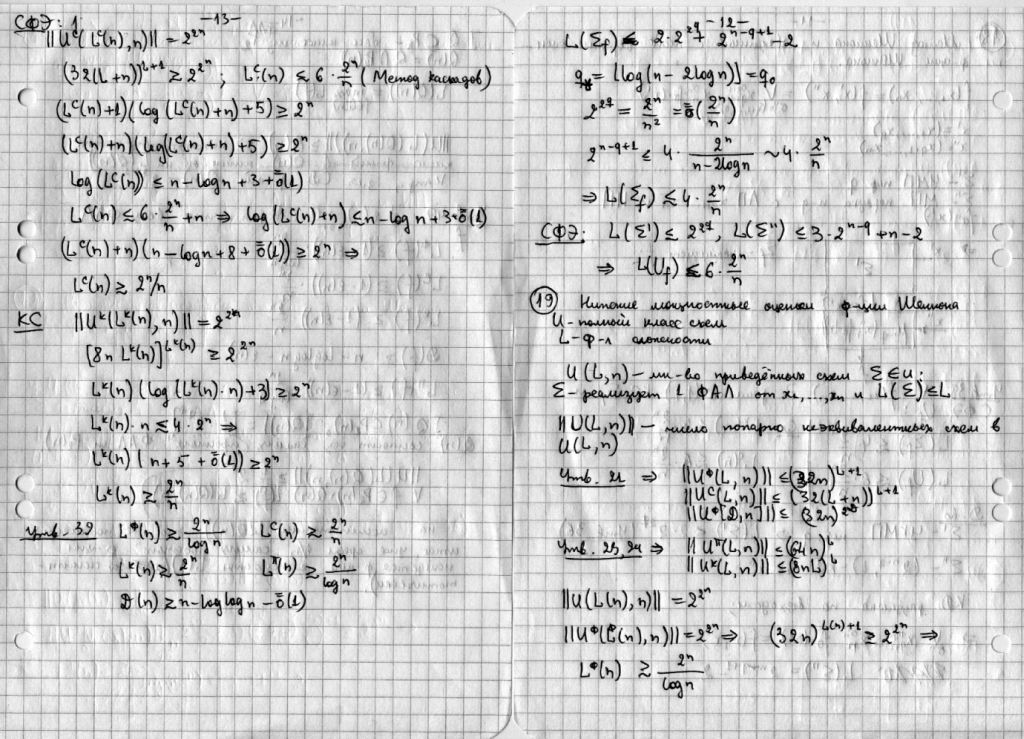 -13-
СФЭ:
||U^C(L^C(n),n)|| = 2^{2^n}
(32(L+n))^{L+1} ≥ 2^{2^n} ; L^C(n) ≲ 6·2^n/n (Метод каскадов)
(L^C(n)+1)(log(L^C(n)+n)+5) ≥ 2^n
(L^C(n)+n)(log(L^C(n)+n)+5) ≥ 2^n
log(L^C(n)) ≤ n-log n+3+ō(1)
L^C(n) ≲ 6·2^n/n +n ⇒ log(L^C(n)+n) ≤ n-log n+3+ō(1)
(L^C(n)+n)(n-log n+8+ō(1)) ≥ 2^n ⇒
L^C(n) ≳ 2^n/n
КС
||U^K(L^K(n),n)|| = 2^{2^n}
[8n L^K(n)]^{L^K(n)} ≥ 2^{2^n}
L^K(n)(log(L^K(n)·n)+3) ≥ 2^n
L^K(n)·n ≲ 4·2^n ⇒
L^K(n)(n+5+ō(1)) ≥ 2^n
L^K(n) ≳ 2^n/n
Утв. 32 L^Ф(n) ≳ 2^n/log n L^C(n) ≳ 2^n/n
L^K(n) ≳ 2^n/n L^П(n) ≳ 2^n/log n
D(n) ≥ n-log log n-ō(1)
-12-
L(Σ_f) ≤ 2·2^{2^q}+2^{n-q+1}-2
q = ⌊log(n-2log n)⌋ = q_0
2^{2^q} = 2^n/n^2 = ō(2^n/n)
2^{n-q+1} ≤ 4·2^n/(n-2log n) ~ 4·2^n/n
⇒ L(Σ_f) ≲ 4·2^n/n
СФЭ: L(Σ') ≤ 2^{2^q}, L(Σ'') ≤ 3·2^{n-q}+n-2
⇒ L(U_f) ≲ 6·2^n/n
19 Нижние мощностные оценки ф-ции Шеннона
U-полный класс схем
L-ф-л сложности
U(L,n) - мн-во приведённых схем Σ∈U:
Σ-реализует 1 ФАЛ от x_1,...,x_n и L(Σ)≤L
||U(L,n)|| - число попарно неэквивалентных схем в
U(L,n)
Утв. 21 ⇒ ||U^Ф(L,n)|| ≤ (32n)^{L+1}
||U^C(L,n)|| ≤ (32(L+n))^{L+1}
||U^Ф[D,n]|| ≤ (32n)^{2^D}
Утв. 23,24 ⇒ ||U^П(L,n)|| ≤ (64n)^L
||U^K(L,n)|| ≤ (8nL)^L
||U(L(n),n)|| = 2^{2^n}
||U^Ф(L^Ф(n),n)|| = 2^{2^n} ⇒ (32n)^{L(n)+1} ≥ 2^{2^n} ⇒
L^Ф(n) ≳ 2^n/log n